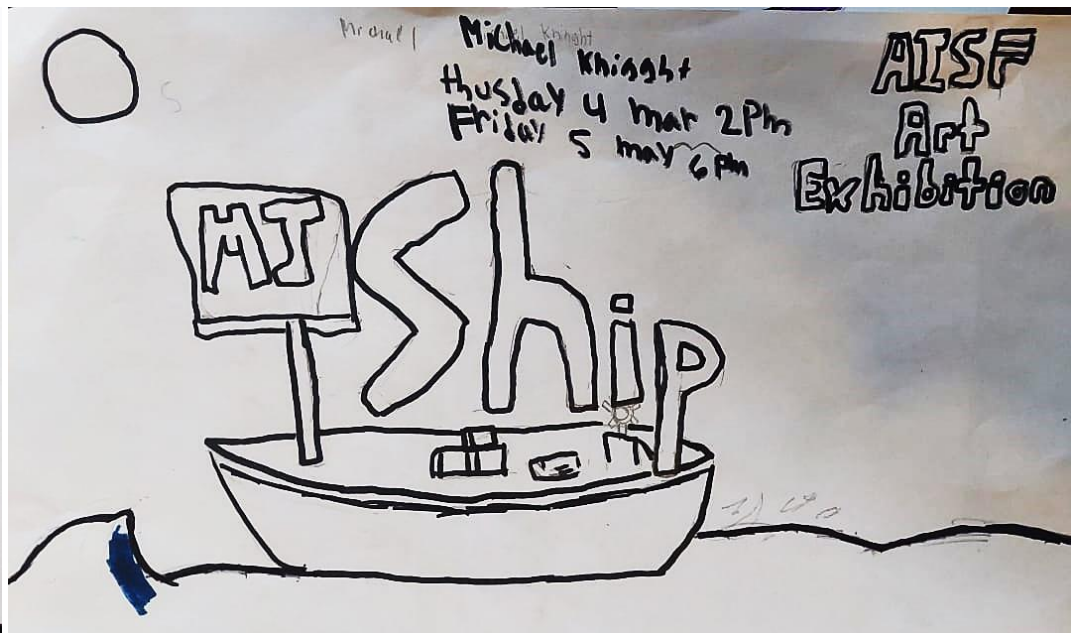 Michael Knigght
thusday 4 mar 2Pm
Friday 5 may 6 pm
AISF
Art
Exhibition
MJ
Ship